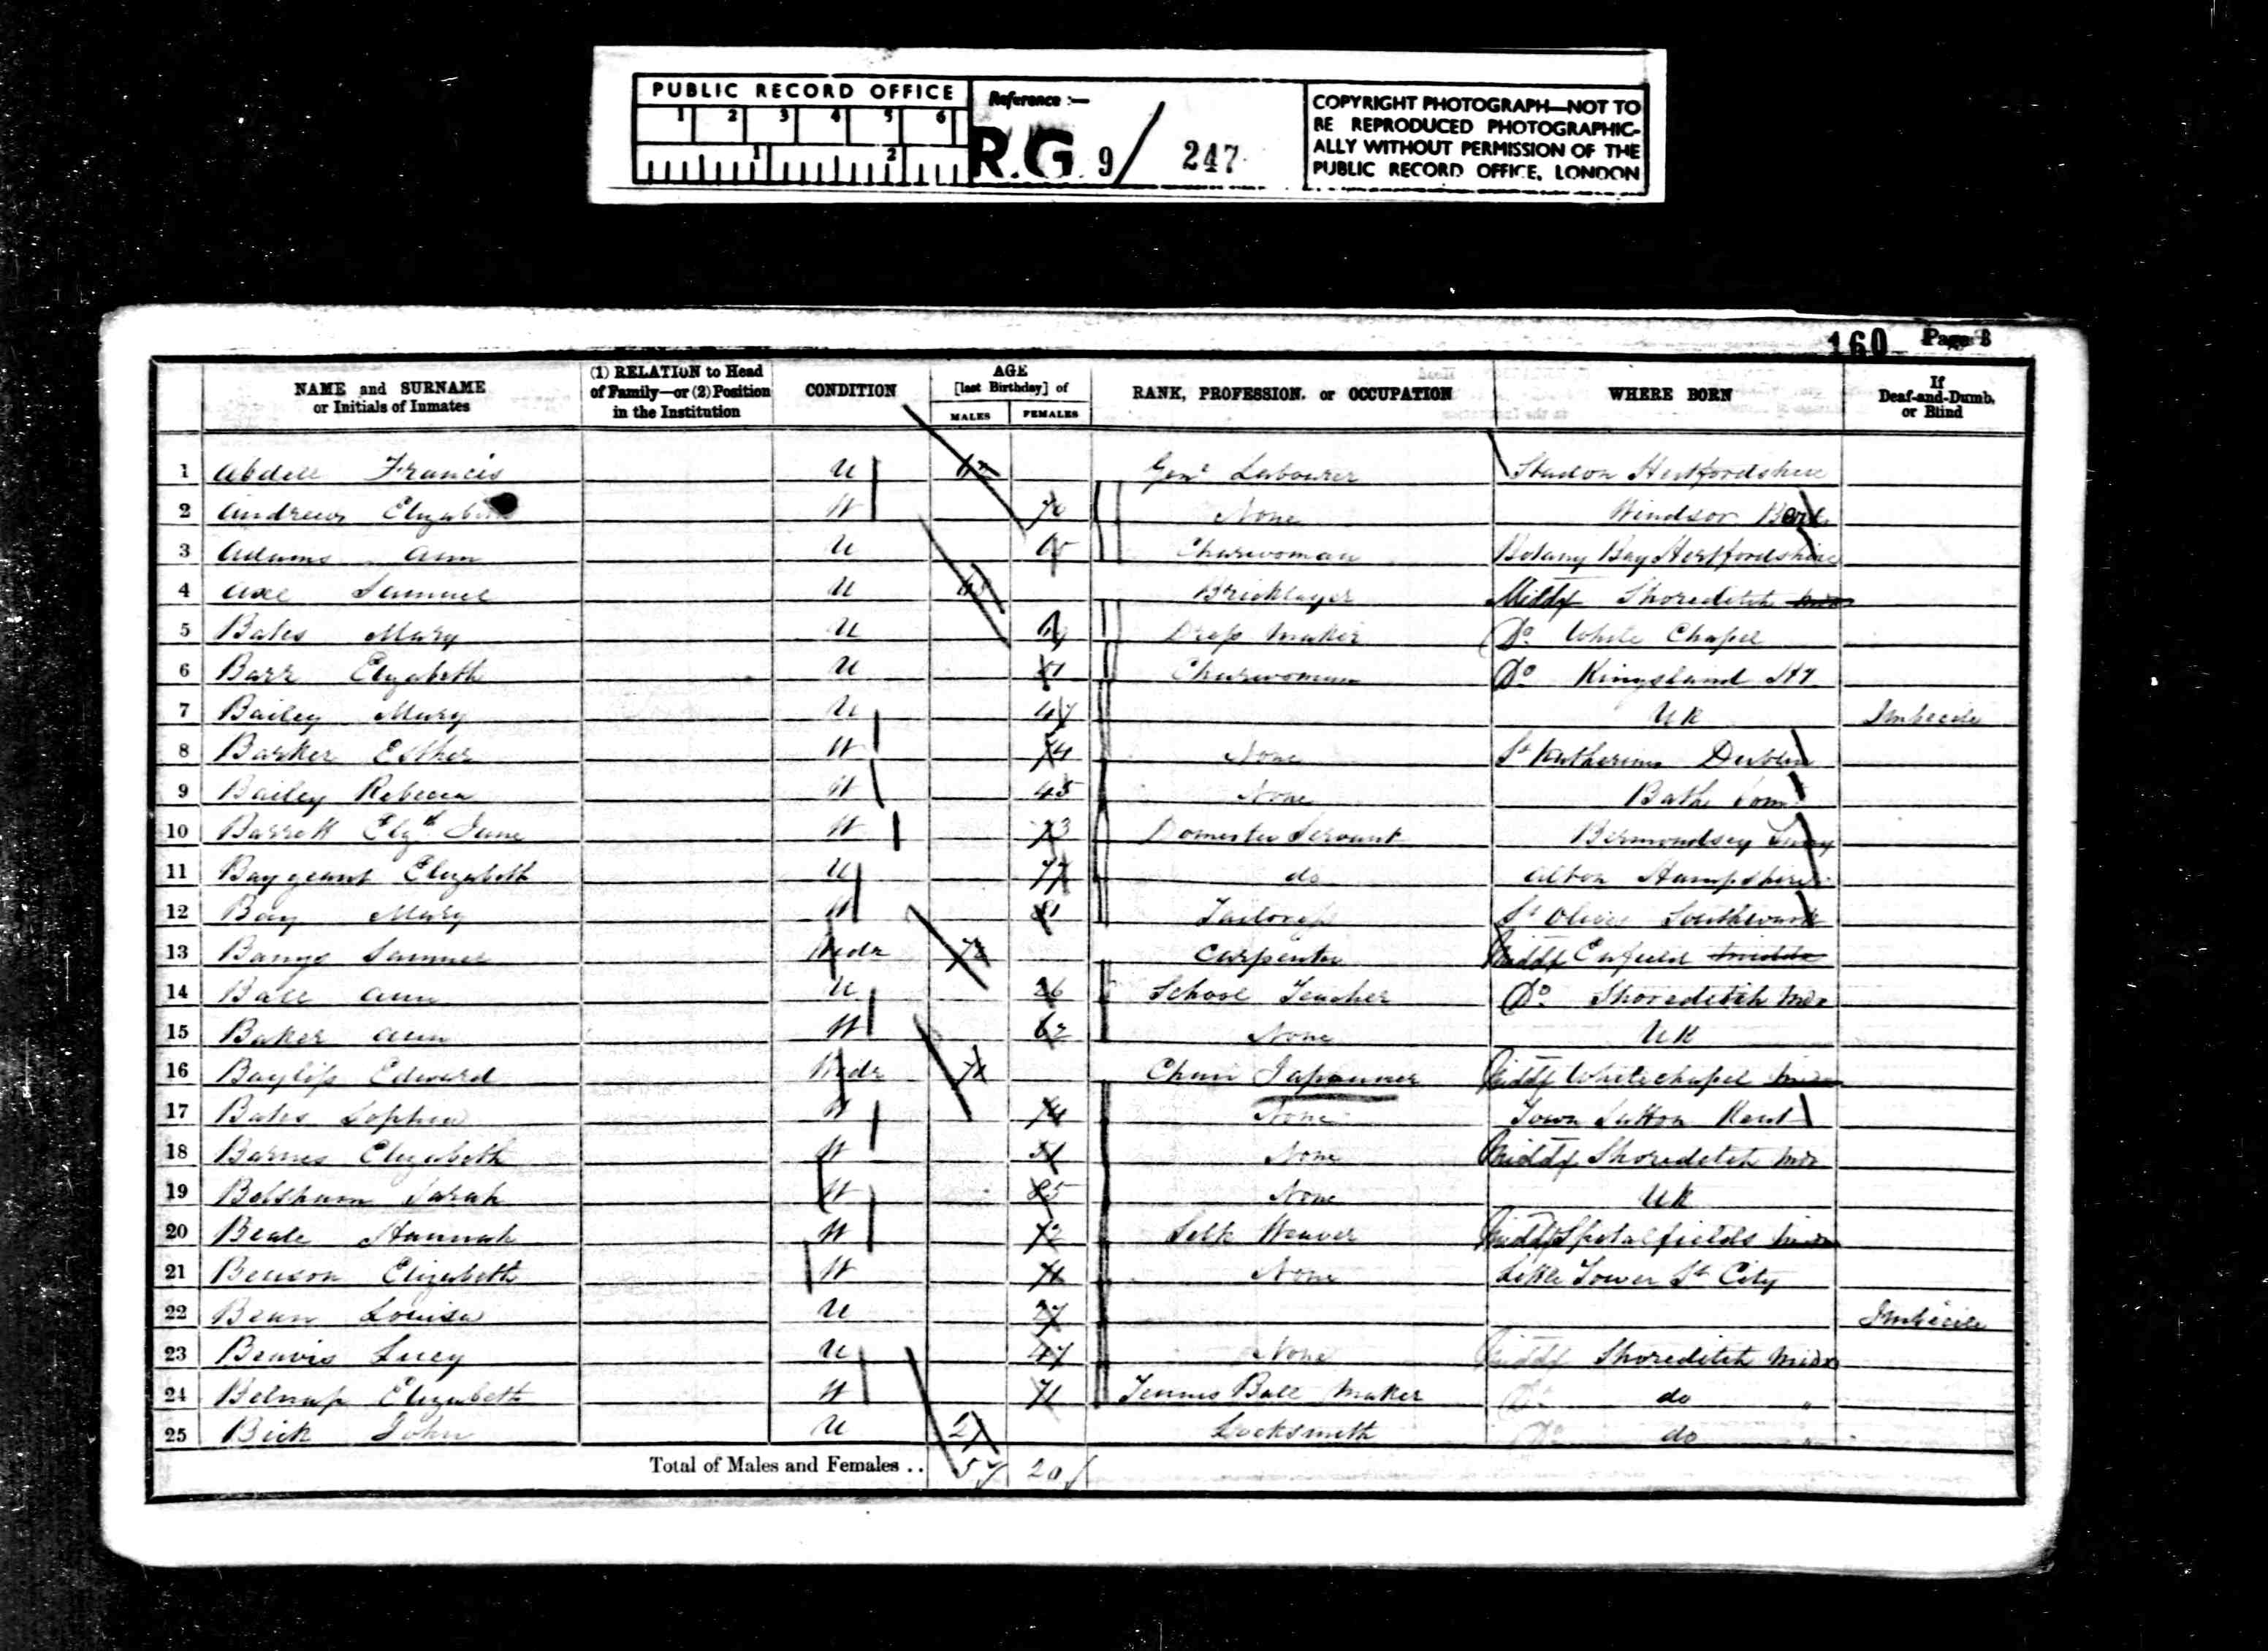 PUBLIC RECORD OFFICE
1 2 3 4 5 6
1 2
Reference :—
R.G. 9/ 247
COPYRIGHT PHOTOGRAPH—NOT TO
BE REPRODUCED PHOTOGRAPHIC-
ALLY WITHOUT PERMISSION OF THE
PUBLIC RECORD OFFICE, LONDON
160 Page 3
NAME and SURNAME or Initials of Inmates (1) RELATION to Head of Family—or (2) Position in the Institution CONDITION AGE [last Birthday] of MALES FEMALES RANK, PROFESSION, or OCCUPATION WHERE BORN If Deaf-and-Dumb, or Blind
1 Abdell Francis U 62 Genl Labourer Hertfordshire
2 Andrews Elizabeth W 70 None Windsor
3 Adams Ann U 65 Charwoman Botany Bay Hertfordshire
4 Axe Samuel U Bricklayer Middx Shoreditch
5 Bates Mary U Dress Maker Do White Chapel
6 Barr Elizabeth U Charwoman Do Kingsland
7 Bailey Mary U 47 UK Imbecile
8 Barker Esther W 74 None St Katherines Dublin
9 Bailey Rebecca W 45 None Bath Som
10 Barrett Elzth Jane W 73 Domestic Servant Bermondsey
11 Baygeant Elizabeth U 77 do Alton Hampshire
12 Bay Mary W 81 Tailoress St Olives Southwark
13 Samuel Widr Carpenter Middx Enfield
14 Ball Ann U 26 School Teacher Do Shoreditch Mdx
15 Baker Ann W 62 None UK
16 Bayliss Edward Widr Chair Japanner Middx Whitechapel
17 Bates Sophia W 74 None Town Sutton Kent
18 Barnes Elizabeth W 51 None Middx Shoreditch Mdx
19 Belsham Sarah W 85 None UK
20 Beale Hannah W 72 Silk Weaver Middx Spitalfields
21 Benson Elizabeth W None Little Tower St City
22 Bean Louisa U 27 Imbecile
23 Beavis Lucy U 47 None Middx Shoreditch Middx
24 Belnap Elizabeth W 71 Tennis Ball Maker Do do "
25 Bick John U Locksmith Do do "
Total of Males and Females .. 5 20